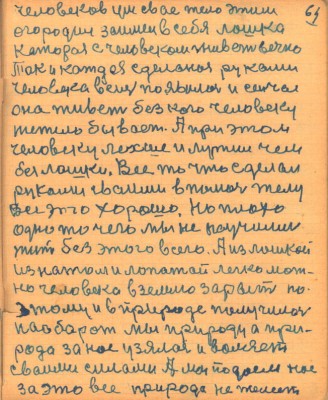 64
человеков ум свае тело этим
огородил заимел в себя ложка
катораѧ с человекам живет вечно
Так и каждоя сделаноя руками
человека вещ появилоя и сейчас
она живет без кого человеку
тежело бывает. А при этом
человеку легше и лутши чем
без ложки. Все то что сделал
руками своими в помош телу
все это хорошо. Но плохо
одно то чего мы не научилис
жит без этого всего. А из ложкой
из нажом и лопатай легко мож-
но человека в землю зарыт по-
этому и в природе получилос
наоборот мы природу а при-
рода за нас узялас и воюет
своими силами А мы подаем нос
за это все природа не желает